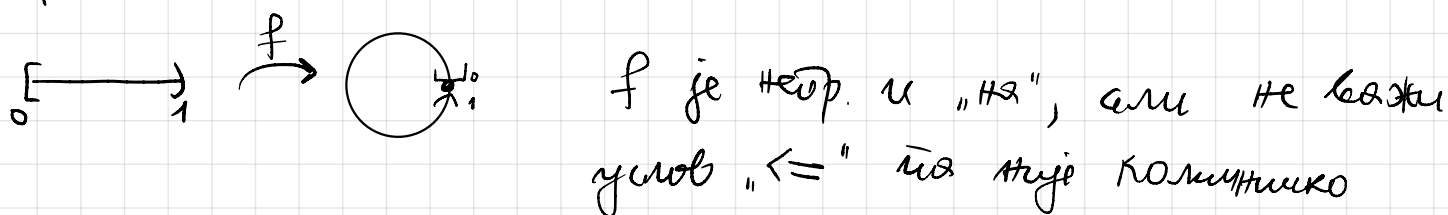 f
[ ) f је непр. и „на“, али не важи
0 1 0 1
услов „<=“ па није количничко